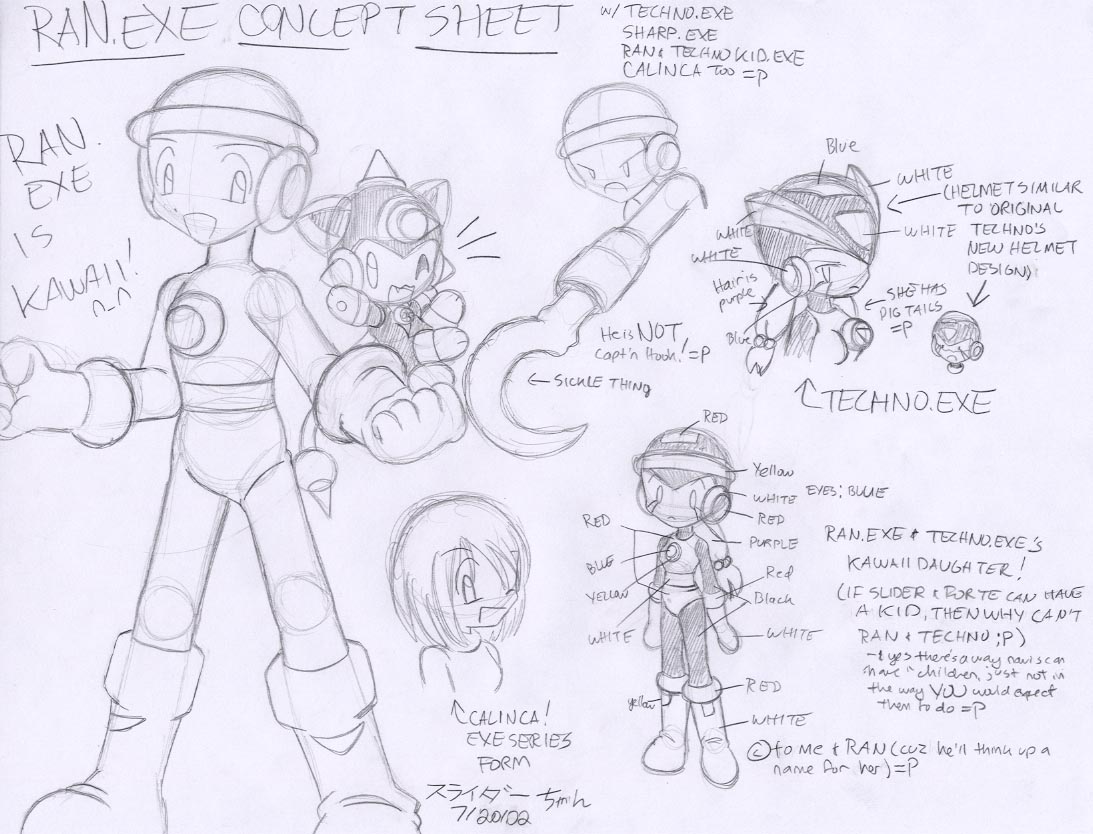 RAN.EXE CONCEPT SHEET
W/ TECHNO.EXE
SHARP.EXE
RAN & TECHNO KID.EXE
CALINCA TOO =P
RAN.
EXE
IS
KAWAII!
^-^
Blue
WHITE
(HELMET SIMILAR
TO ORIGINAL
TECHNO'S
NEW HELMET
DESIGN)
WHITE
WHITE
WHITE
Hair is
purple
Blue
SHE HAS
PIG TAILS
=P
TECHNO.EXE
He is NOT
Capt'n Hook! =P
SICKLE THING
RED
Yellow
WHITE
EYES: BLUE
RED
RED
PURPLE
BLUE
Red
Yellow
Black
WHITE
WHITE
RED
yellow
WHITE
RAN.EXE & TECHNO.EXE'S
KAWAII DAUGHTER!
(IF SLIDER & PORTE CAN HAVE
A KID, THEN WHY CAN'T
RAN & TECHNO ;P)
- & yes there's a way navis can
have "children, just not in
the way YOU would expect
them to do =P
© to me & RAN (cuz he'll think up a
name for her) =P
CALINCA!
EXE SERIES
FORM
スライダー ちゃん